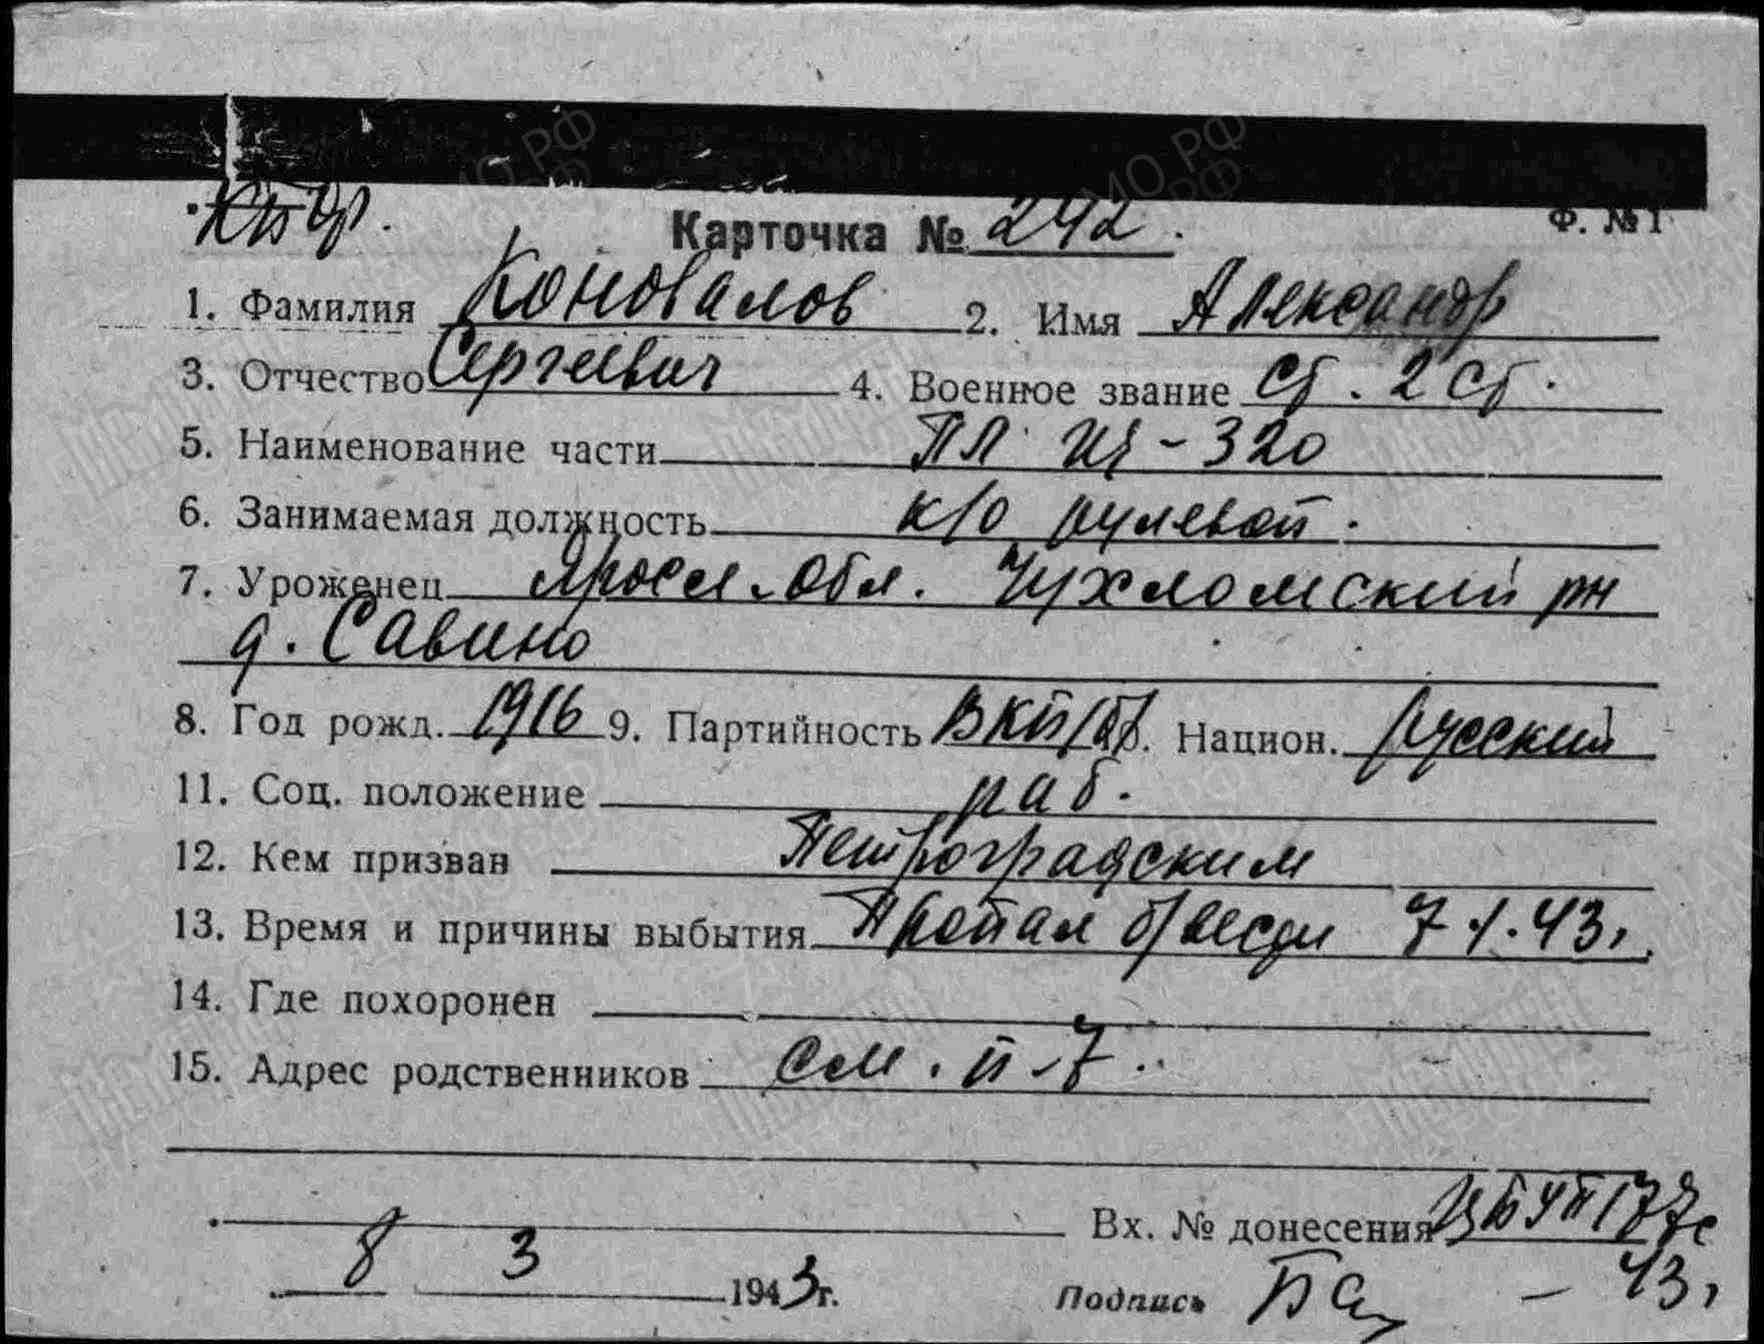 КБФ.
Карточка № 242. Ф. № 1
1. Фамилия Коновалов 2. Имя Александр
3. Отчество Сергеевич 4. Военное звание ст. 2 ст.
5. Наименование части ПЛ Щ-320
6. Занимаемая должность к/о рулевой.
7. Уроженец Яросл. Обл. Чухломский рн
д. Савино
8. Год рожд. 1916 9. Партийность ВКП/б/ Национ. Русский
11. Соц. положение раб.
12. Кем призван Петроградским
13. Время и причины выбытия Пропал б/вести 7.1.43г.
14. Где похоронен
15. Адрес родственников См. п-7.
Вх. № донесения
8 3 1943г. Подпись - 43г